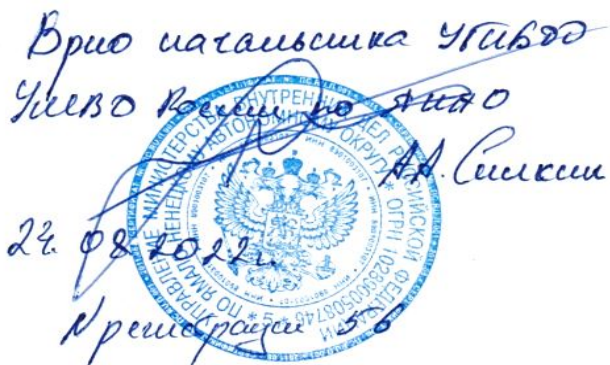 Врио начальника УГИБДД
УМВД России по ЯНАО
А.А. Силкин
24.08.2022г.
N регистрации 5-6
УПРАВЛЕНИЕ МИНИСТЕРСТВА ВНУТРЕННИХ ДЕЛ РОССИЙСКОЙ ФЕДЕРАЦИИ
ПО ЯМАЛО-НЕНЕЦКОМУ АВТОНОМНОМУ ОКРУГУ * ОГРН 1028900508746 * 5 *